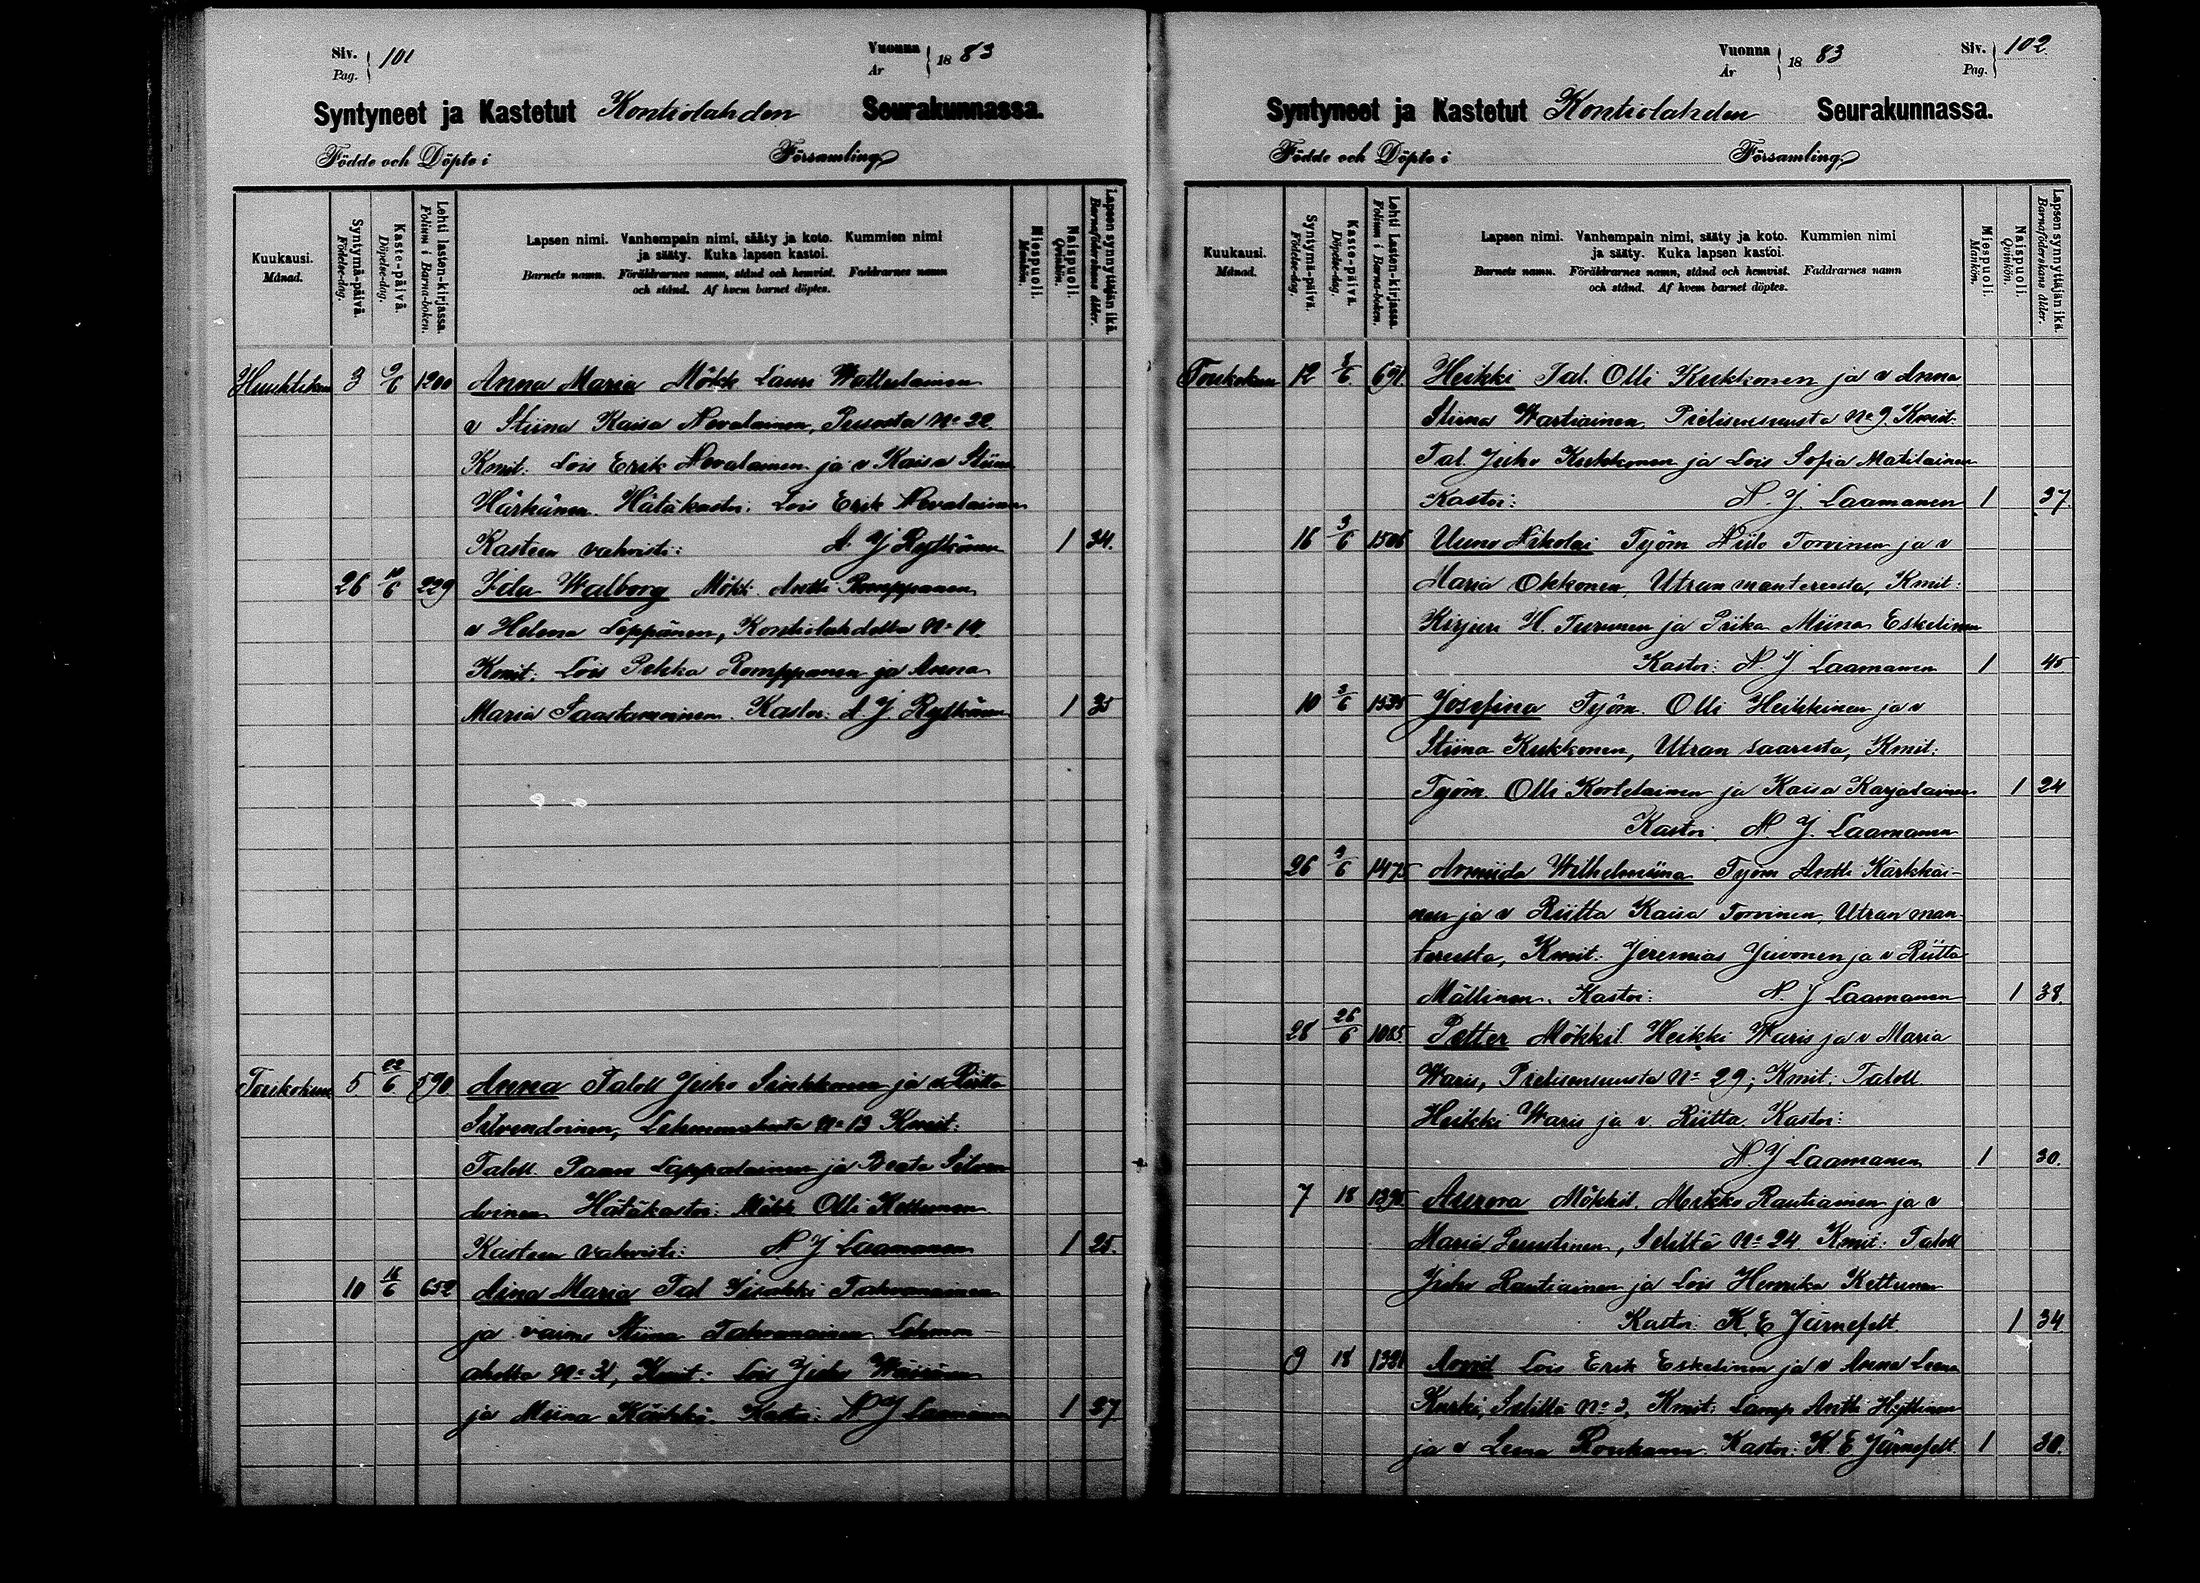 Siv. Pag. 101 Vuonna År 1883
Syntyneet ja Kastetut Kontiolahden Seurakunnassa.
Födde och Döpte i Församling
Kuukausi. Månad.
Syntymä-päivä. Födelse-dag.
Kaste-päivä. Döpelse-dag.
Lehti lasten-kirjassa. Folium i Barna-boken.
Lapsen nimi. Vanhempain nimi, sääty ja koto. Kummien nimi
ja sääty. Kuka lapsen kastoi.
Barnets namn. Föräldrarnes namn, stånd och hemvist. Faddrarnes namn
och stånd. Af hvem barnet döptes.
Miespuoli. Mankön.
Naispuoli. Qvinkön.
Lapsen synnyttäjän ikä. Barnaföderskans ålder.
Huuhtikuu 3 9/6 1200 Anna Maria Mökk Lauri Wattulainen
v Stiina Kaisa Nevalainen, Puso​sta No 22
Kmit: Lois Erik Nevalainen ja v Kaisa Stiina
Härkänen. Hätäkastoi: Lois Erik Nevalainen
Kasteen vahvisti: A J Rytkönen 1 34.
26 10/6 229 Ida Walborg Mökk Antti Romppanen
v Helena Leppänen, Kontiolahdelta No 14.
Kmit: Lois Pekka Romppanen ja Anna
Maria Saastamoinen. Kastoi: A J Rytkönen 1 35
Toukokuu 5. 22/6. 590 Anna Taloll Juho Sinkkonen ja v Riitta
Silvendoinen, No 13 Kmit:
Taloll. Paavo Lappalainen ja Beata Silven
doinen Hätäkastoi: Mökk Olli Kettunen
Kasteen vahvisti: N J Laamanen 1 25.
10 16/6 652 Aina Maria Tal Iisakki Tahvanainen
ja vaimo Stiina Tahvanainen Lehmon-
aholta No 31, Kmit: Lois Juho Wäisänen
ja Miina Käsk​i. Kastoi: N J Laamanen 1 27
Vuonna År 1883 Siv. Pag. 102.
Syntyneet ja Kastetut Kontiolahden Seurakunnassa.
Födde och Döpte i Församling
Kuukausi. Månad.
Syntymä-päivä. Födelse-dag.
Kaste-päivä. Döpelse-dag.
Lehti Lasten-kirjassa. Folium i Barna-boken.
Lapsen nimi. Vanhempain nimi, sääty ja koto. Kummien nimi
ja sääty. Kuka lapsen kastoi.
Barnets namn. Föräldrarnes namn, stånd och hemvist. Faddrarnes namn
och stånd. Af hvem barnet döptes.
Miespuoli. Mankön.
Naispuoli. Qvinkön.
Lapsen synnyttäjän ikä. Barnaföderskans ålder.
Toukokuu 12 3/6 691 Heikki Tal. Olli Kukkonen ja v Anna
Stiina Wartiainen, Pielisensuusta No 9. Kmit:
Tal. Juho Kukkonen ja Lois Sofia Matilainen
Kastoi: N. J. Laamanen 1 37.
16 3/6 1506 Uuno Nikolai Työm Niilo Torvinen ja v
Maria Okkonen, Utran mantereesta, Kmit:
Kirjuri H. Turunen ja Piika Miina Eskelinen
Kastoi: N. J Laamanen 1 45
10 3/6 1535 Josefina Työm. Olli Heikkinen ja v
Stiina Kukkonen, Utran saaresta, Kmit:
Työm. Olli Kortelainen ja Kaisa Karjalainen 1 24
Kastoi: N. J. Laamanen
26 3/6 1475 Armiida Wilhelmiina Työm Antti Kärkkäi-
nen ja v Riitta Kaisa Torvinen, Utran man-
tereesta, Kmit: Jeremias Juvonen ja v Riitta
Mällinen. Kastoi: N. J Laamanen 1 38.
28 26/6 1085. Petter Mökkil Heikki Waris ja v Maria
Waris, Pielisensuusta No 29; Kmit: Taloll.
Heikki Waris ja v. Riitta. Kastoi:
N J Laamanen 1 30.
7 18 1395. Aurora Mökkil. Mikko Rautiainen ja v
Maria Puustinen, Seliltä No 24. Kmit: Taloll
Juho Rautiainen ja Lois Henrika Kettunen
Kastoi: K. E Järnefelt. 1 34
9 18 1321 Arvid Lois Erik Eskelinen ja v Anna Leena
Kurki, Seliltä No 3, Kmit: Lamp Antti Hyttinen
ja v Leena Rouhanen. Kastoi: K E Järnefelt 1 30.